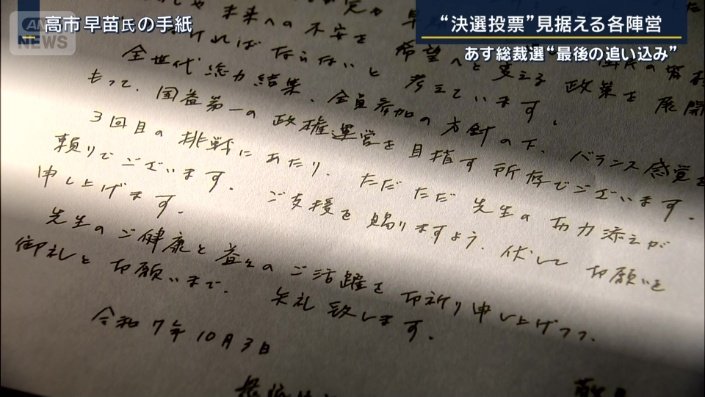 ANN NEWS
高市早苗氏の手紙
“決選投票”見据える各陣営
あす総裁選“最後の追い込み”
や未来への不安を 希望へと変える 政策を 展開
なければならないと 考えています。
全世代総力結集、全員参加の方針の下、バランス感覚を
もって、国益第一の政権運営を目指す所存でございます。
3回目の挑戦にあたり、ただただ先生のお力添えが
頼りでございます。ご支援を賜りますよう、伏してお願いを
申し上げます。
先生のご健康と益々のご活躍をお祈り申し上げつつ、
御礼とお願いまで。失礼致します。
令和7年10月3日